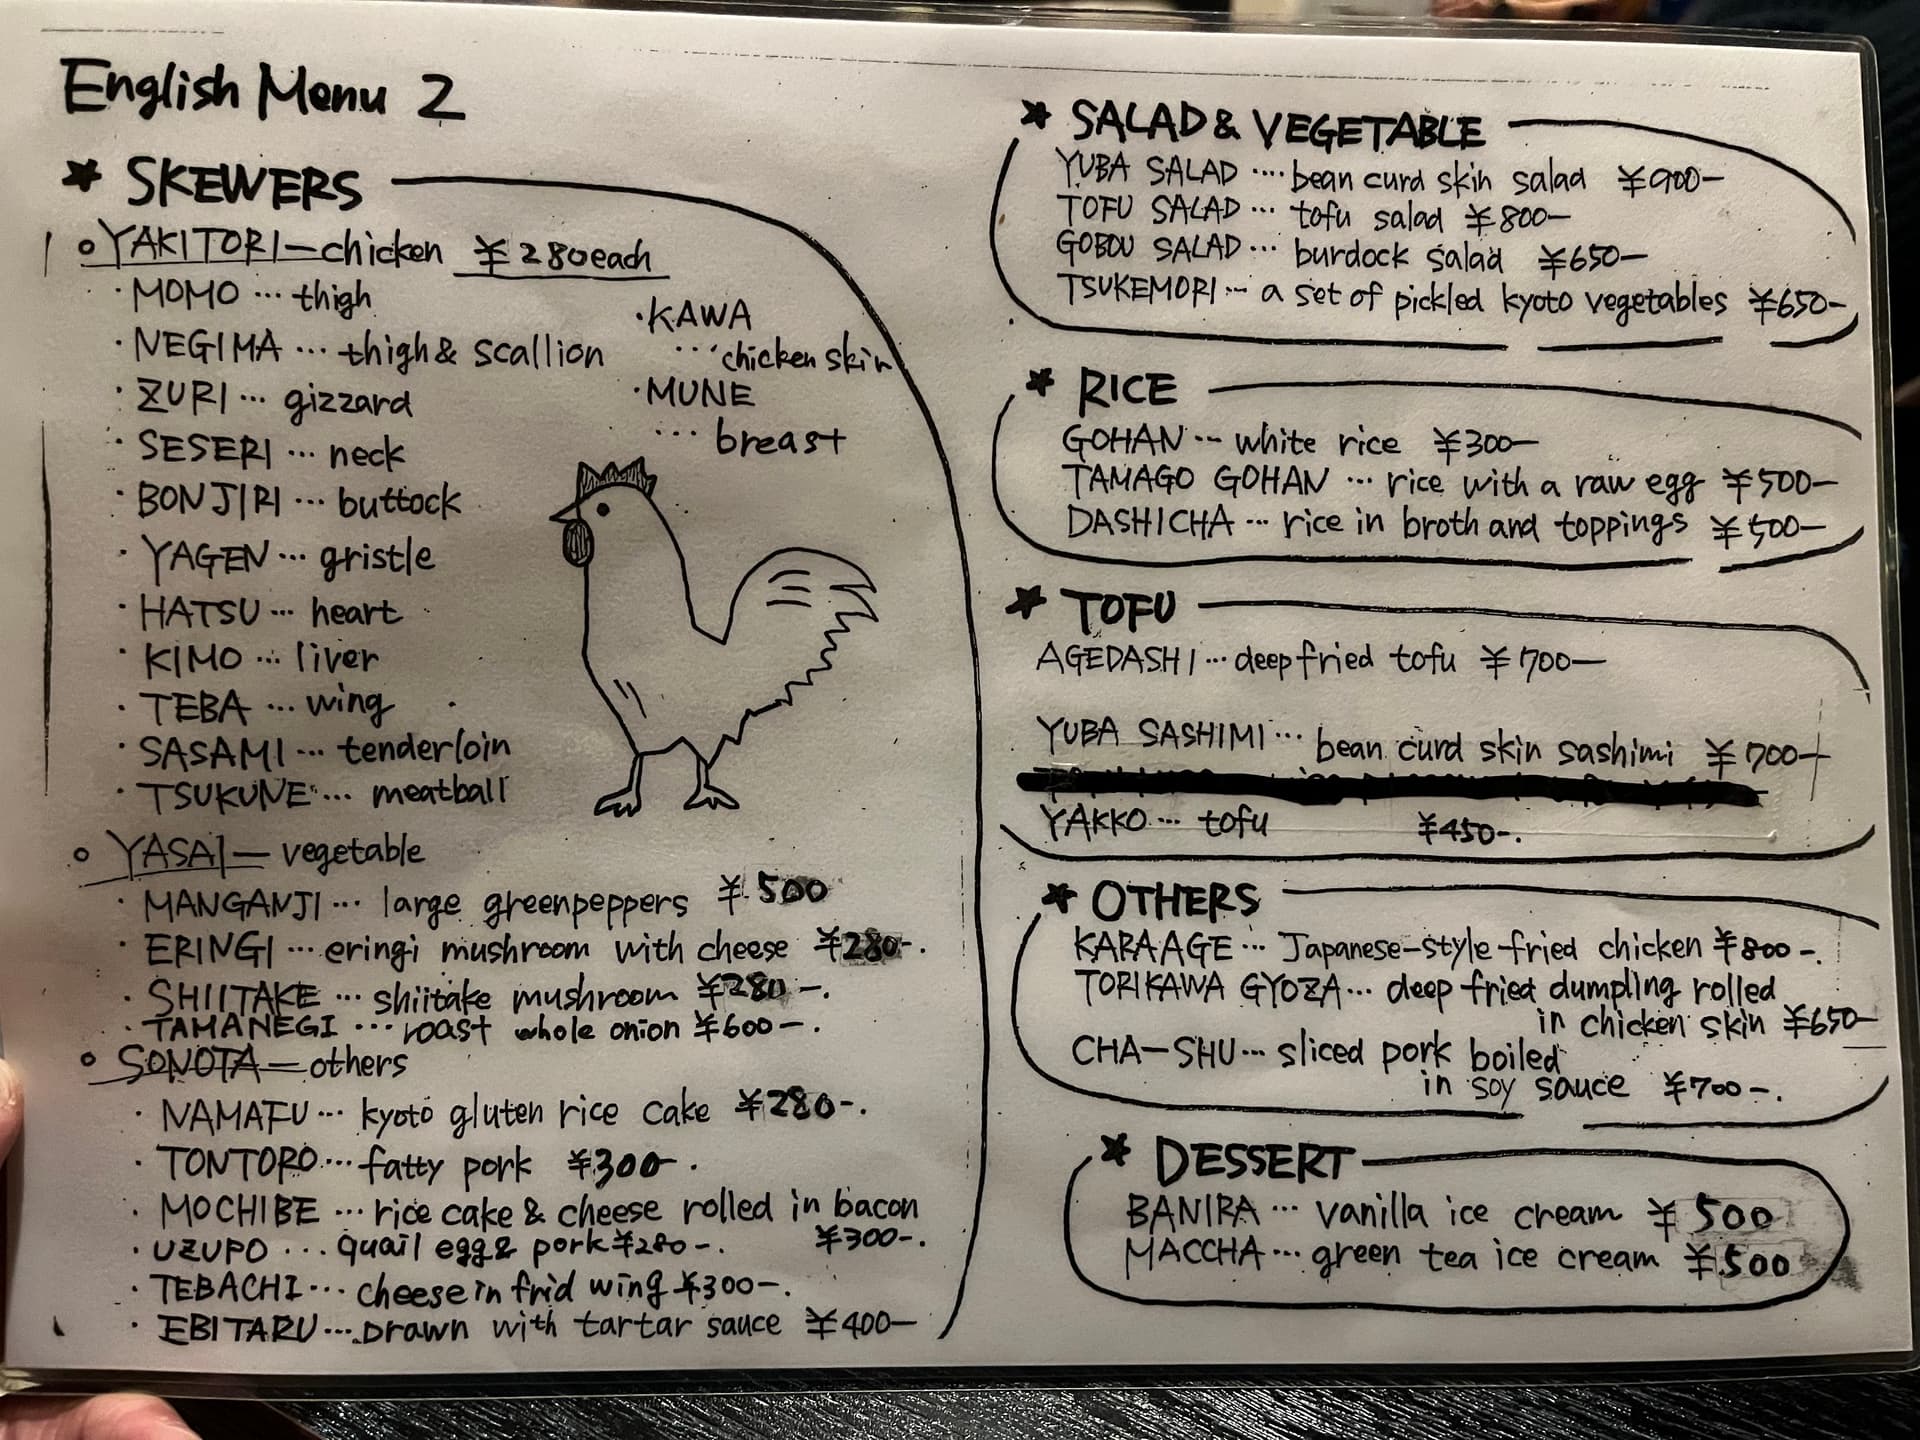 English Menu 2
★ SKEWERS
○ YAKITORI—chicken ¥280each
・MOMO … thigh
・NEGIMA … thigh & scallion
・ZURI … gizzard
・SESERI … neck
・BONJIRI … buttock
・YAGEN … gristle
・HATSU … heart
・KIMO … liver
・TEBA … wing
・SASAMI … tenderloin
・TSUKUNE … meatball
・KAWA
… chicken skin
・MUNE
… breast
○ YASAI— vegetable
・MANGANJI … large greenpeppers ¥500
・ERINGI … eringi mushroom with cheese ¥280-.
・SHIITAKE … shiitake mushroom ¥280-.
・TAMANEGI … roast whole onion ¥600-.
○ SONOTA—others
・NAMAFU … kyoto gluten rice cake ¥280-.
・TONTORO … fatty pork ¥300-.
・MOCHIBE … rice cake & cheese rolled in bacon
¥300-.
・UZUPO … quail egg & pork ¥280-.
・TEBACHI … cheese in frid wing ¥300-.
・EBITARU … prawn with tartar sauce ¥400-
★ SALAD & VEGETABLE
YUBA SALAD … bean curd skin salad ¥900-
TOFU SALAD … tofu salad ¥800-
GOBOU SALAD … burdock salad ¥650-
TSUKEMORI … a set of pickled kyoto vegetables ¥650-
★ RICE
GOHAN … white rice ¥300-
TAMAGO GOHAN … rice with a raw egg ¥500-
DASHICHA … rice in broth and toppings ¥500-
★ TOFU
AGEDASHI … deep fried tofu ¥700-
YUBA SASHIMI … bean curd skin sashimi ¥700-
YAKKO … tofu ¥450-.
★ OTHERS
KARAAGE … Japanese-style fried chicken ¥800-.
TORIKAWA GYOZA … deep fried dumpling rolled
in chicken skin ¥650-
CHA-SHU … sliced pork boiled
in soy sauce ¥700-.
★ DESSERT
BANIRA … vanilla ice cream ¥500
MACCHA … green tea ice cream ¥500